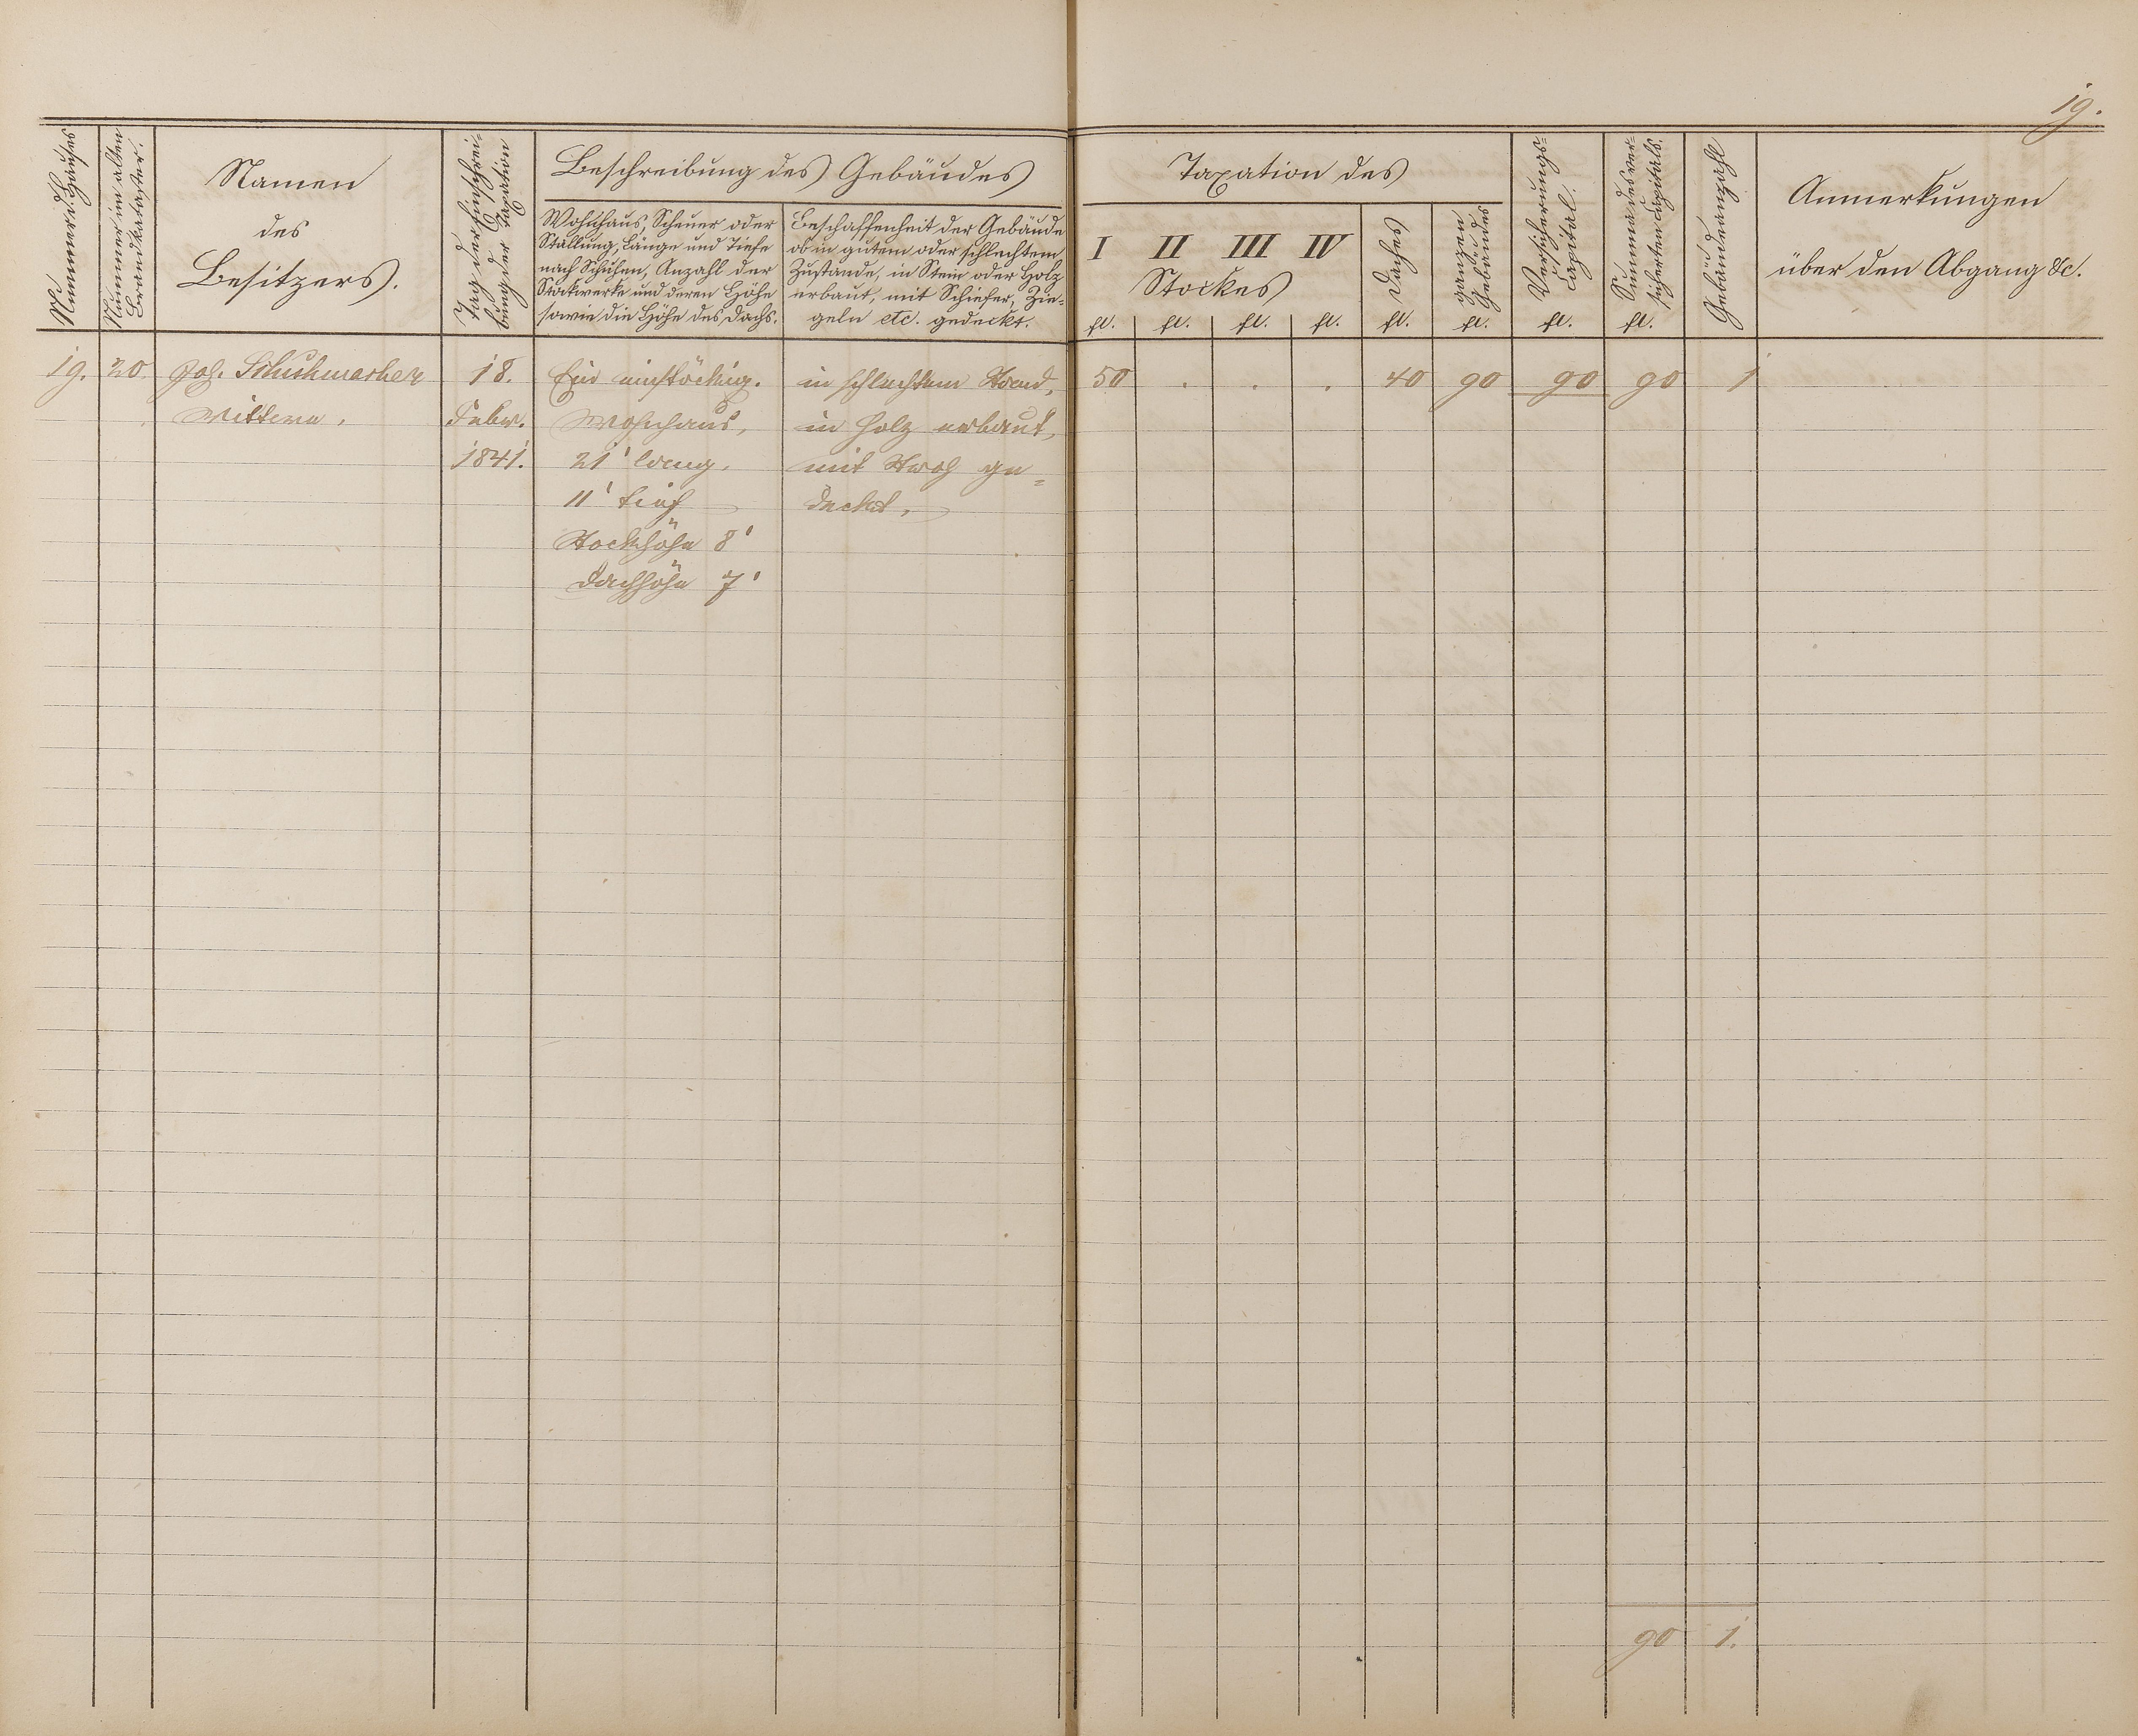 19.
Nummer d. Hauses
Nummer im alten
Brandkataster.
Namen
des
Besitzers.
Tag der Einschrei-
bung der Taxation
Beschreibung des Gebäudes
Wohnhaus, Scheuer oder
Stallung, Länge und Tiefe
nach Schuhen, Anzahl der
Stockwerke und deren Höhe
sowie die Höhe des Dachs.
Beschaffenheit der Gebäude
ob in gutem oder schlechtem
Zustande, in Stein oder Holz
erbaut, mit Schiefer, Zie-
geln etc. gedeckt.
Taxation des
I II III IV
Stockes
Daches
ganzen
Gebäudes
Versicherungs-
Capital.
Summa des ver-
sicherten Capitals.
Gebäudeanzahl
Anmerkungen
über den Abgang &c.
fl. fl. fl. fl. fl. fl. fl. fl.
19. 20. Joh. Schuhmacher 18. Ein einstöckig. in schlechtem Stand, 50 . . . 40 90 90 90 1
Wittwe. Febr. Wohnhaus, in Holz erbaut,
1841. 21' lang. mit Stroh ge=
11' tief deckt.
Stockhöhe 8'
Dachhöhe 7'
90 1.